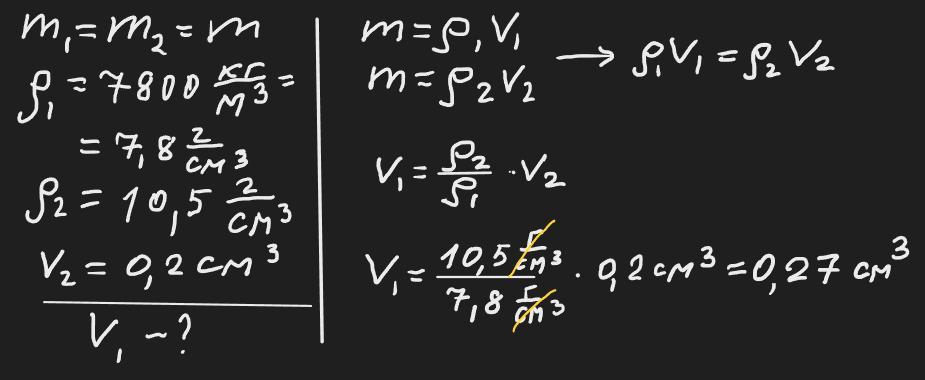 m₁ = m₂ = m
ρ₁ = 7800 кг/м³ =
= 7,8 г/см³
ρ₂ = 10,5 г/см³
V₂ = 0,2 см³
V₁ – ?
m = ρ₁V₁
m = ρ₂V₂
→ ρ₁V₁ = ρ₂V₂
V₁ = ρ₂/ρ₁ · V₂
V₁ = 10,5 г/см³ / 7,8 г/см³ · 0,2 см³ = 0,27 см³